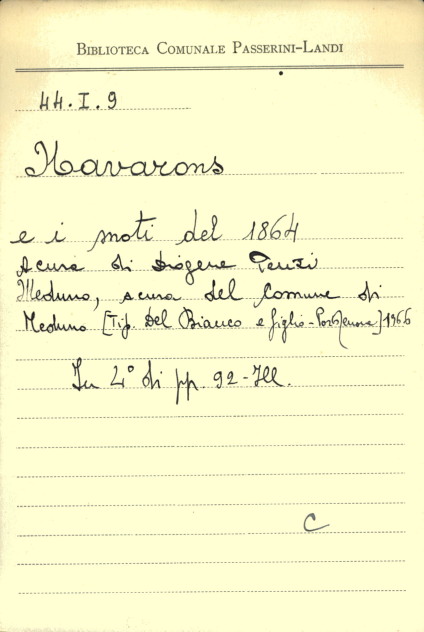 BIBLIOTECA COMUNALE PASSERINI-LANDI
44.I.9
Navarons
e i moti del 1864
A cura di Diogene Penzi
Meduno, a cura del Comune di
Meduno [Tip. Del Bianco e figlio - Pordenone] 1966
In 4° di pp. 92 - Ill.
C